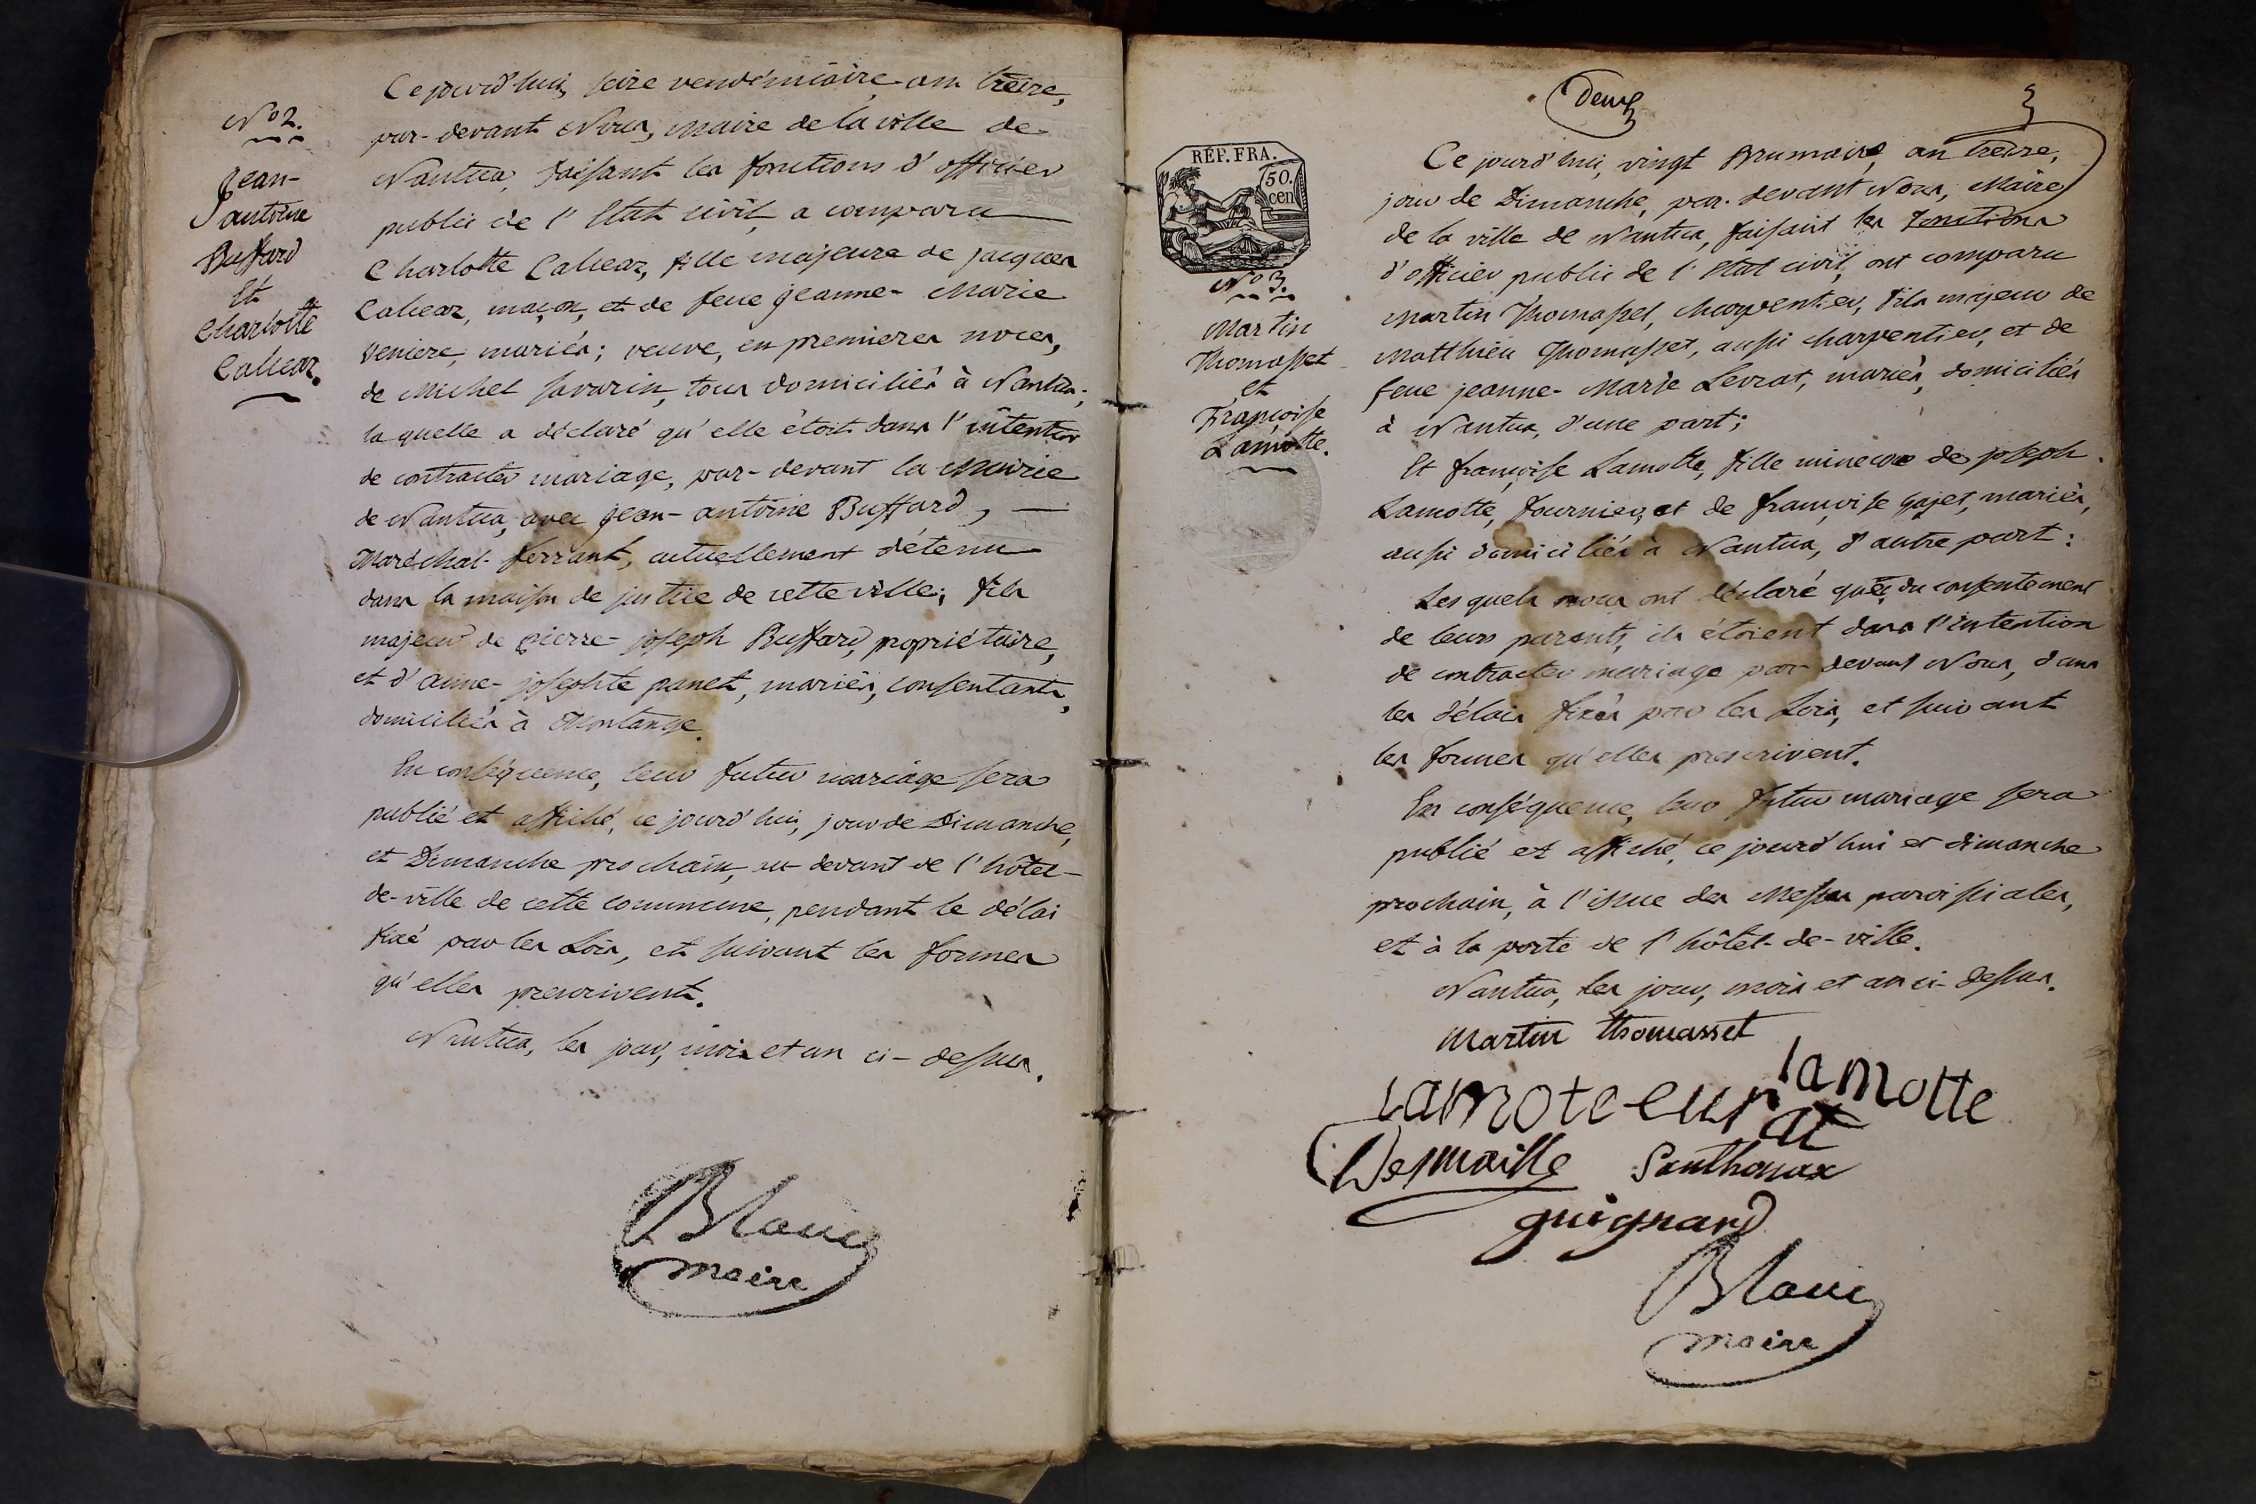 Nº 2.
Jean-
antoine
Buffard
Et
Charlotte
Callear.
Ce jourd'hui, seize vendémiaire an treize,
par-devant Nous, Maire de la ville de
Nantua, faisant les fonctions d'officier
public de l'Etat civil, a comparu
Charlotte Callear, fille majeure de jacques
Callear, maçon, et de feue jeanne-Marie
Veniere, mariés; veuve, en premieres noces,
de Michel Savarin, tous domiciliés à Nantua;
la quelle a déclaré qu'elle étoit dans l'intention
de contracter mariage, par-devant la Mairie
de Nantua, avec jean-antoine Buffard,
Maréchal-ferrant, actuellement détenu
dans la maison de justice de cette ville; fils
majeur de pierre-joseph Buffard, propriétaire,
et d'anne-josephte panet, mariés, consentants,
domiciliés à Montange.
En conséquence, leur futur mariage sera
publié et affiché, ce jourd'hui, jour de Dimanche,
et Dimanche prochain, au devant de l'hôtel-
de-ville de cette commune, pendant le délai
fixé par les Lois, et suivant les formes
qu'elles prescrivent.
Nantua, les jour, mois et an ci-dessus.
Blanc
maire
Deux
3
REP. FRA.
50.
cen
Nº 3.
Martin
Thomasset
et
Françoise
Lamotte.
Ce jourd'hui, vingt Brumaire, an treize,
jour de Dimanche, par-devant Nous, Maire
de la ville de Nantua, faisant les fonctions
d'officier public de l'Etat civil, ont comparu
Martin Thomasset, charpentier, fils majeur de
Matthieu Thomasset, aussi charpentier, et de
feue jeanne-Marie Levrat, mariés, domiciliés
à Nantua, d'une part;
Et françoise Lamotte, fille mineure de joseph
Lamotte, fournier, et de françoise Gajet, mariés,
aussi domiciliés à Nantua, d'autre part:
Les quels nous ont déclaré que, du consentement
de leurs parents, ils étoient dans l'intention
de contracter mariage par devant Nous, dans
les délais fixés par les Lois, et suivant
les formes qu'elles prescrivent.
En conséquence, leur futur mariage sera
publié et affiché, ce jourd'hui et dimanche
prochain, à l'issue des Messes paroissiales,
et à la porte de l'hôtel-de-ville.
Nantua, les jour, mois et an ci-dessus.
Martin thomasset
lamotte
Desmaille Santhonax
guignard
Blanc
maire